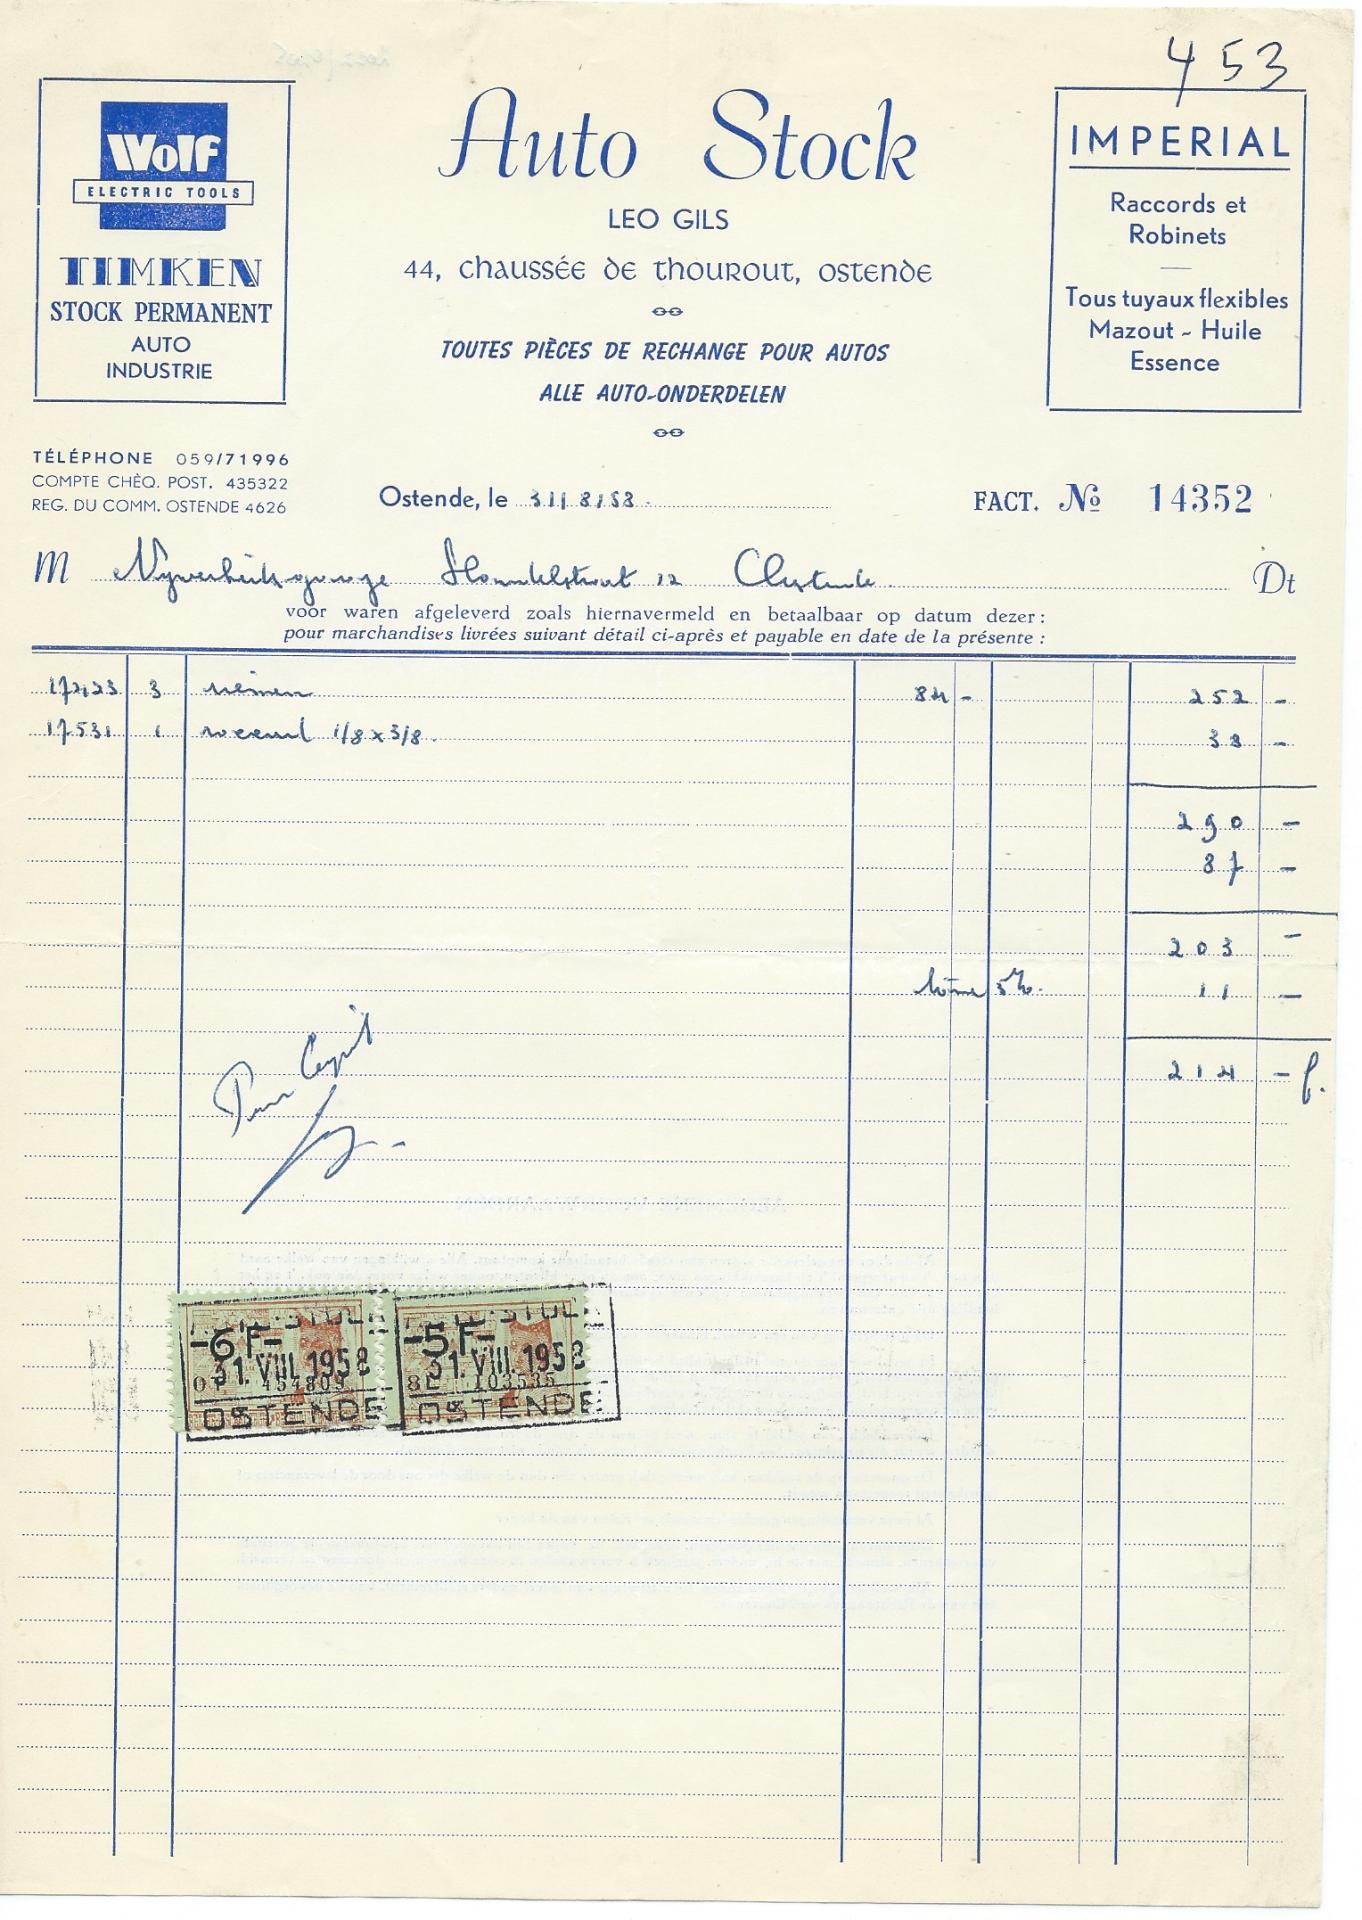 453
Wolf
ELECTRIC TOOLS
TIMKEN
STOCK PERMANENT
AUTO
INDUSTRIE
Auto Stock
LEO GILS
44, chaussée de thourout, ostende
TOUTES PIÈCES DE RECHANGE POUR AUTOS
ALLE AUTO-ONDERDELEN
IMPERIAL
Raccords et
Robinets
Tous tuyaux flexibles
Mazout - Huile
Essence
TÉLÉPHONE 059/71996
COMPTE CHÈQ. POST. 435322
REG. DU COMM. OSTENDE 4626
Ostende, le 31/8/58.
FACT. No 14352
M Nyverheidsgarage Handelstraat 12 Dt
voor waren afgeleverd zoals hiernavermeld en betaalbaar op datum dezer :
pour marchandises livrées suivant détail ci-après et payable en date de la présente :
17423 3 riemen 84 - 252 -
17531 1 1/8 x 3/8. 38 -
290 -
87 -
203 -
5%. 11 -
214 - f.
Pour Acquit
-6F- -5F-
31.VIII.1958 31.VIII.1958
454809 103535
OSTENDE OSTENDE